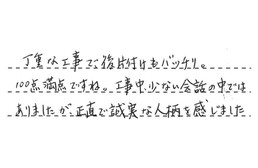 丁寧な工事で後片付けもバッチリ。
100点満点ですね。工事中、少ない会話の中では
ありましたが、正直で誠実な人柄を感じました